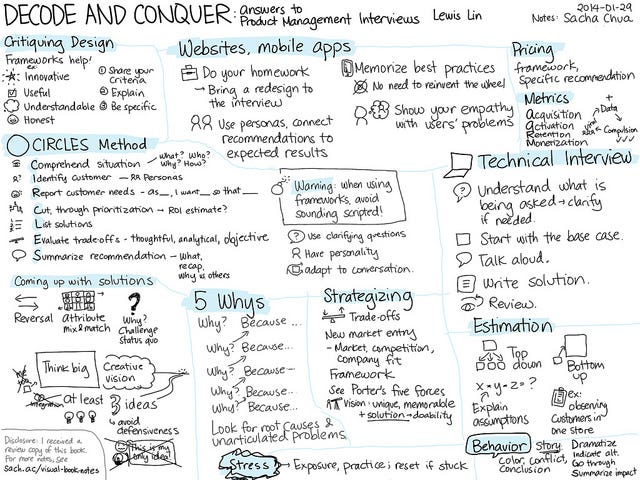 DECODE AND CONQUER: Answers to
Product Management Interviews Lewis Lin
2014-01-29
Notes: Sacha Chua
Critiquing Design
Frameworks help!
ex:
Innovative
Useful
Understandable
Honest
① Share your
criteria
② Explain
③ Be specific
Websites, mobile apps
Do your homework
→ Bring a redesign to
the interview
Use personas, connect
recommendations to
expected results
Memorize best practices
No need to reinvent the wheel
Show your empathy
with users' problems
Pricing
framework,
specific recommendation
Metrics
Acquisition
Activation
Retention
Monetization
+
Data
Compulsion
CIRCLES Method
Comprehend situation
What? Who?
Why? How?
Identify customer — Personas
Report customer needs - as__, I want__ so that __
Cut, through prioritization → ROI estimate?
List solutions
Evaluate trade-offs - thoughtful, analytical, objective
Summarize recommendation - What,
recap,
why vs others
Warning: when using
frameworks, avoid
sounding scripted!
Use clarifying questions
Have personality
adapt to conversation.
Technical Interview
Understand what is
being asked → clarify
if needed.
Start with the base case.
Talk aloud.
Write solution.
Review.
Coming up with solutions
Reversal
attribute
mix & match
?
Why?
Challenge
status quo
Think big
Creative
vision
integration
At least 3 ideas
↳ avoid
defensiveness
This is my
only idea!
5 Whys
Why? Because ...
Why? Because ...
Why? Because -
Why? Because ...
Why? Because ...
Look for root causes &
unarticulated problems.
Strategizing
Trade-offs
New market entry
- Market, competition,
company fit
Framework
See Porter's five forces
Vision: unique, memorable
+ solution → doability
Estimation
Top
down
Bottom
up
x • y ÷ z = ?
Explain
assumptions
ex:
observing
customers in
one store
Stress → Exposure, practice; reset if stuck
Behavior
Story
Color, conflict,
conclusion
Dramatize
Indicate alt.
Go through
Summarize impact
Disclosure: I received a
review copy of this book.
For more notes, see
sach.ac/visual-book-notes